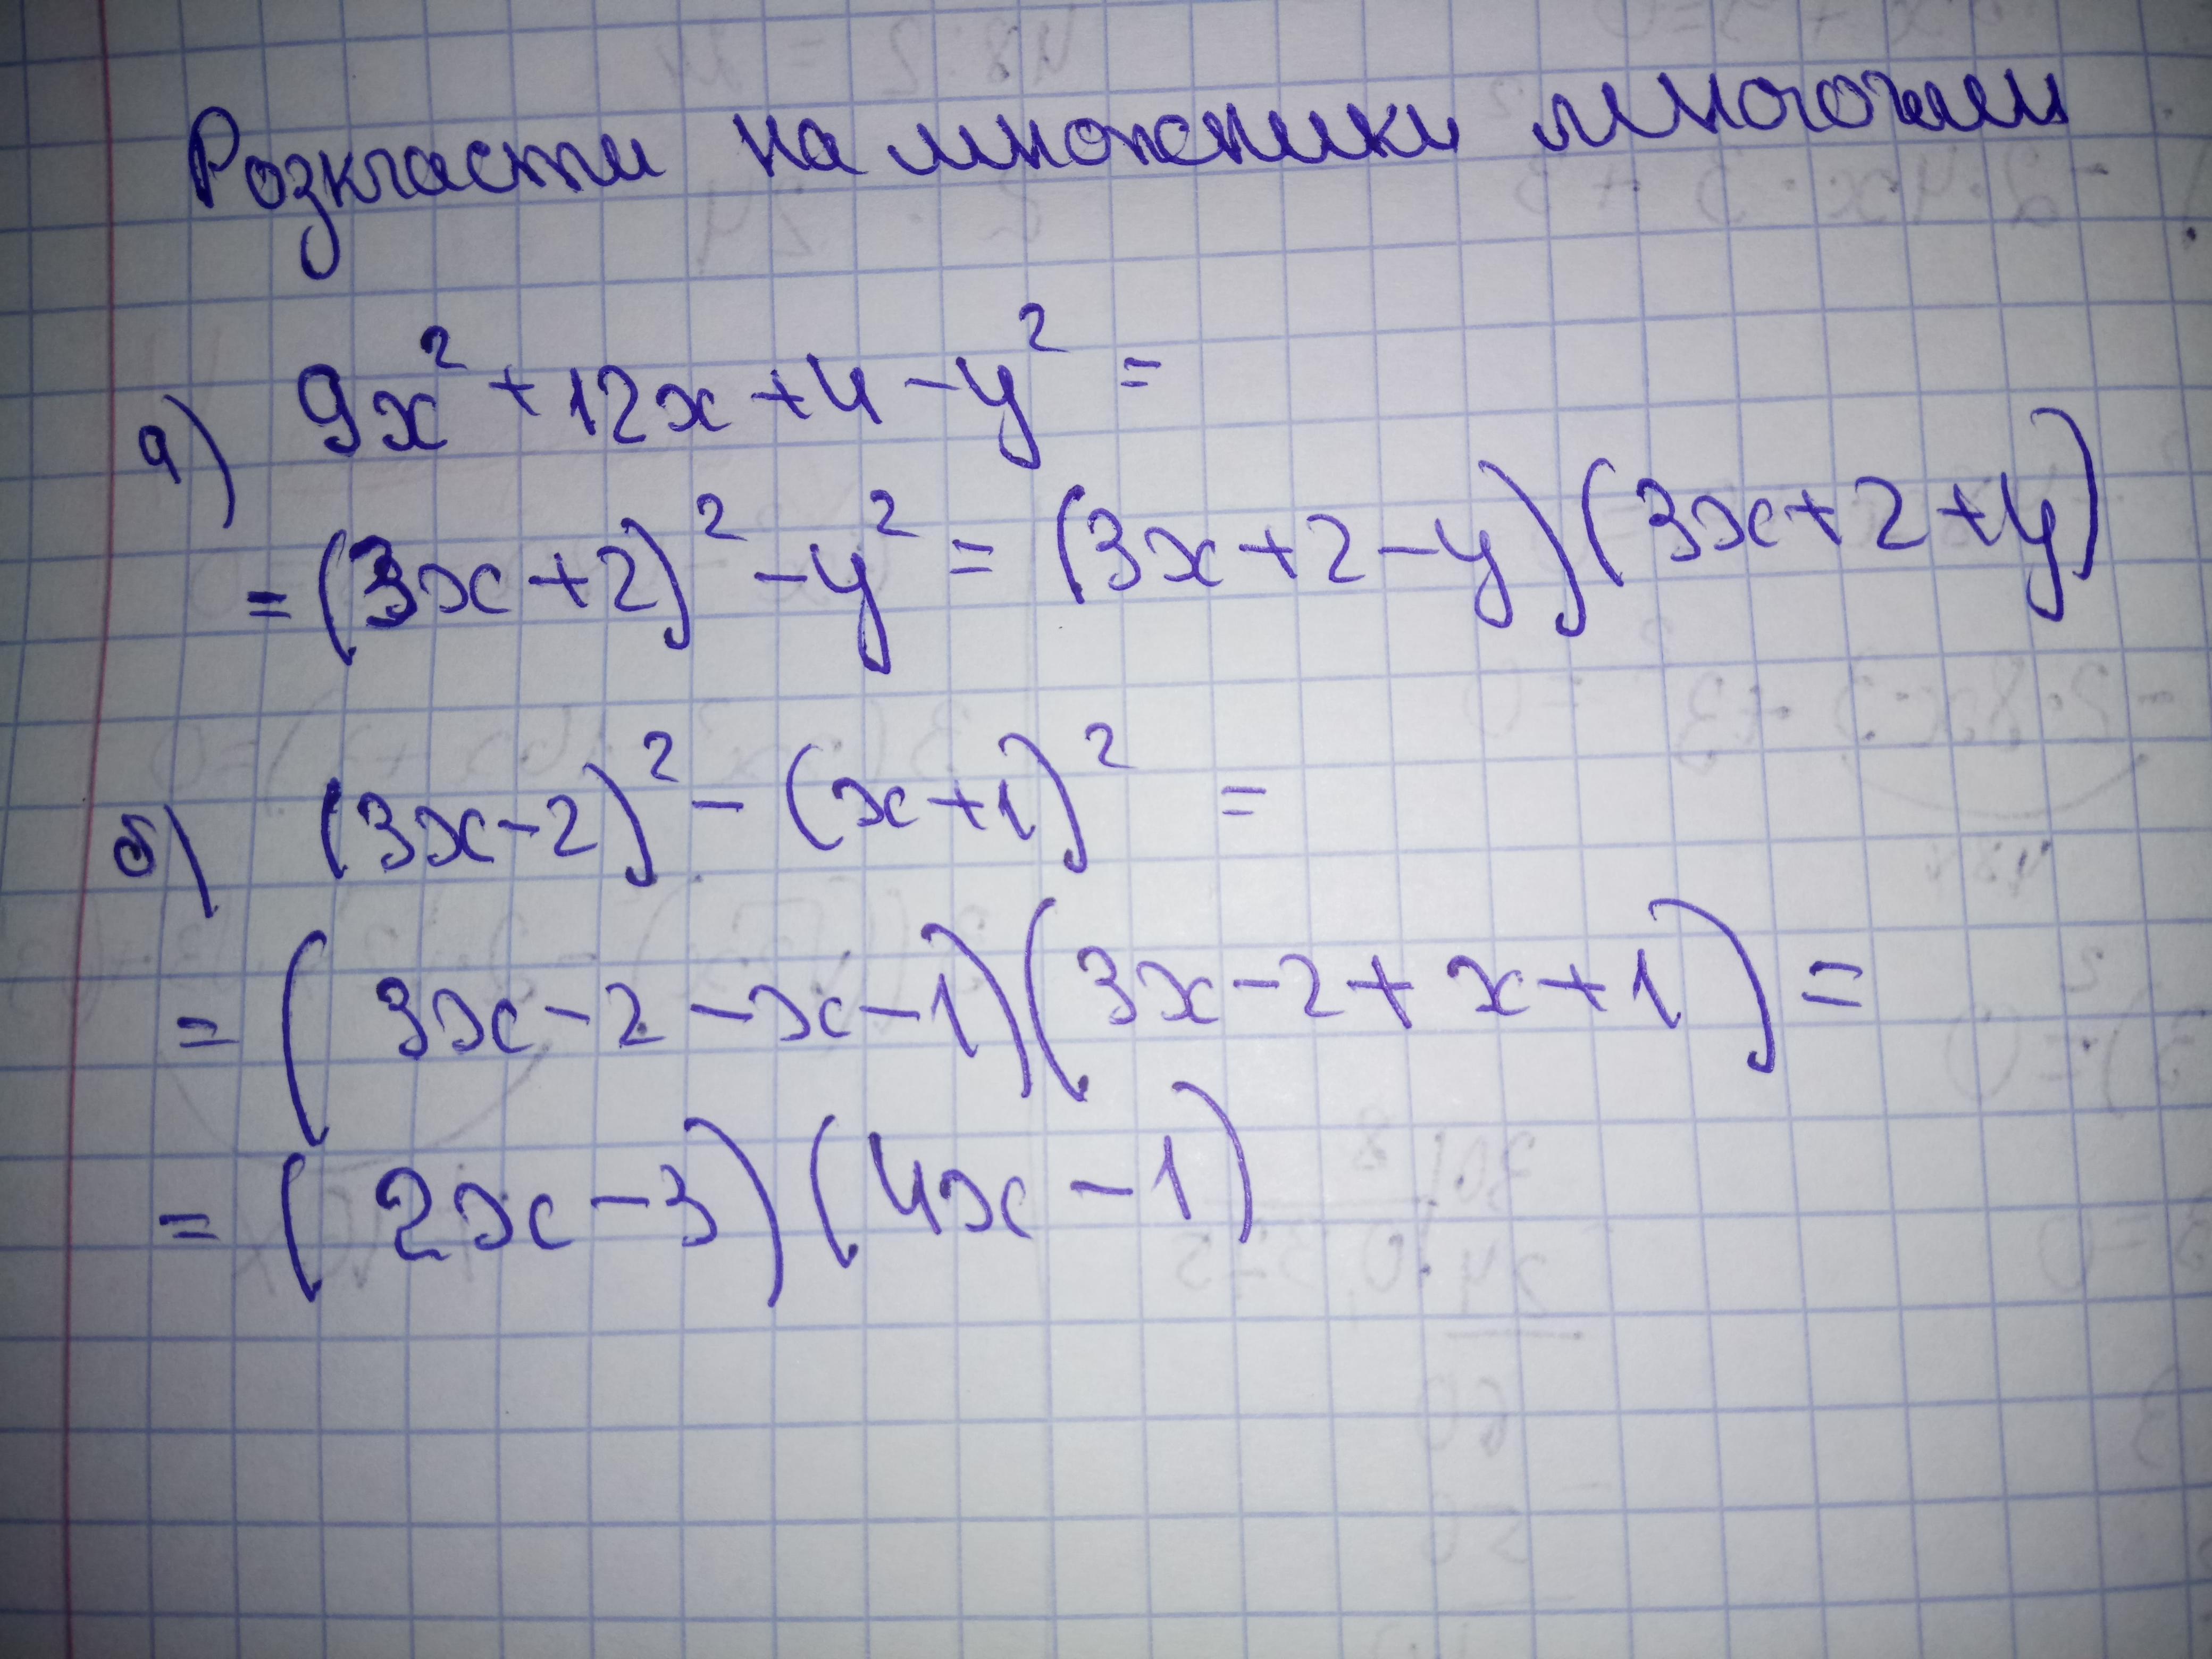 Розкласти на множники многочлен
а) 9x² + 12x + 4 - y² =
= (3x + 2)² - y² = (3x + 2 - y)(3x + 2 + y)
б) (3x - 2)² - (x + 1)² =
= (3x - 2 - x - 1)(3x - 2 + x + 1) =
= (2x - 3)(4x - 1)